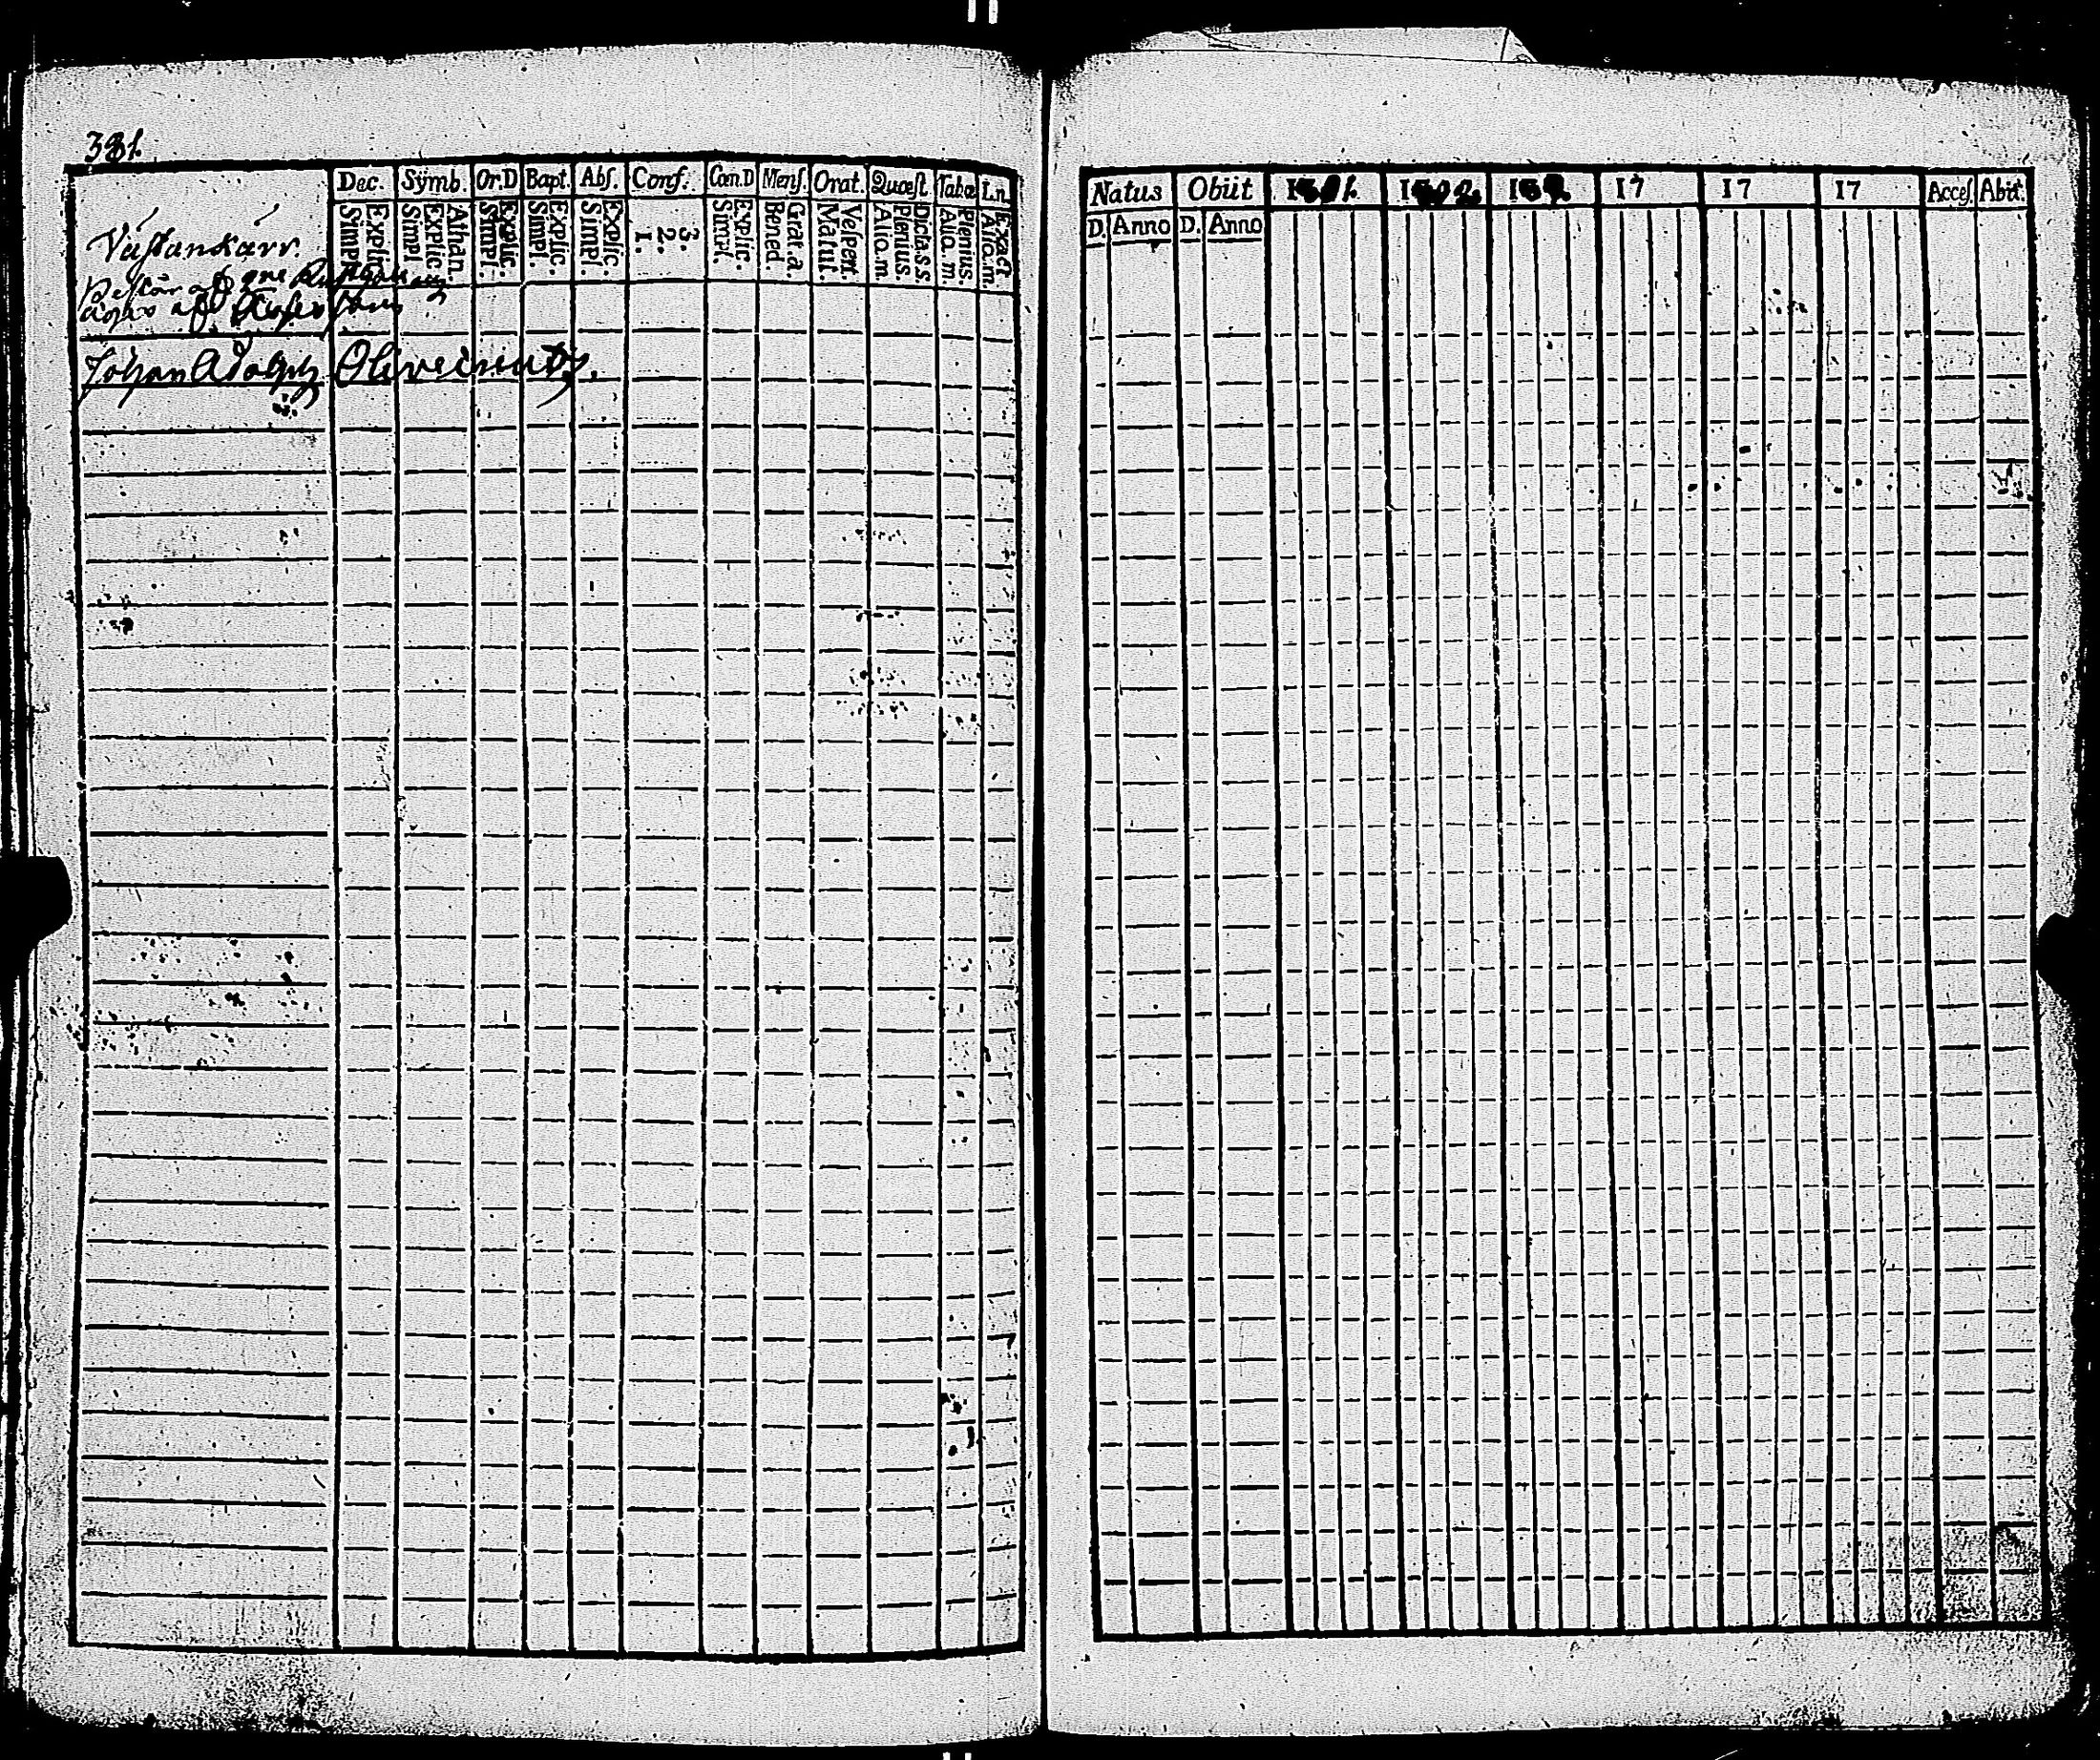 381.
Dec. Sÿmb. Or.D Bapt. Abſ. Conf. Com.D Menſ. Orat. Quæſt Tabœ Ln
Simpl. Explic. Simpl. Explic. Athan. Simpl. Explic. Simpl. Explic. Simpl. Explic. 1. 2. 3. Simpl. Explic. Bened. Grat.a. Matut. Veſpert. Alio.m. Plenius. Dicta.s.s. Alio.m. Plenius. Alio.m. Exact
Väſtankärr.
Beſtår af
äges af
Johan Adolph
Natus Obiit 1801. 1802. 17 17 17 Acceſ. Abiit.
D. Anno D. Anno